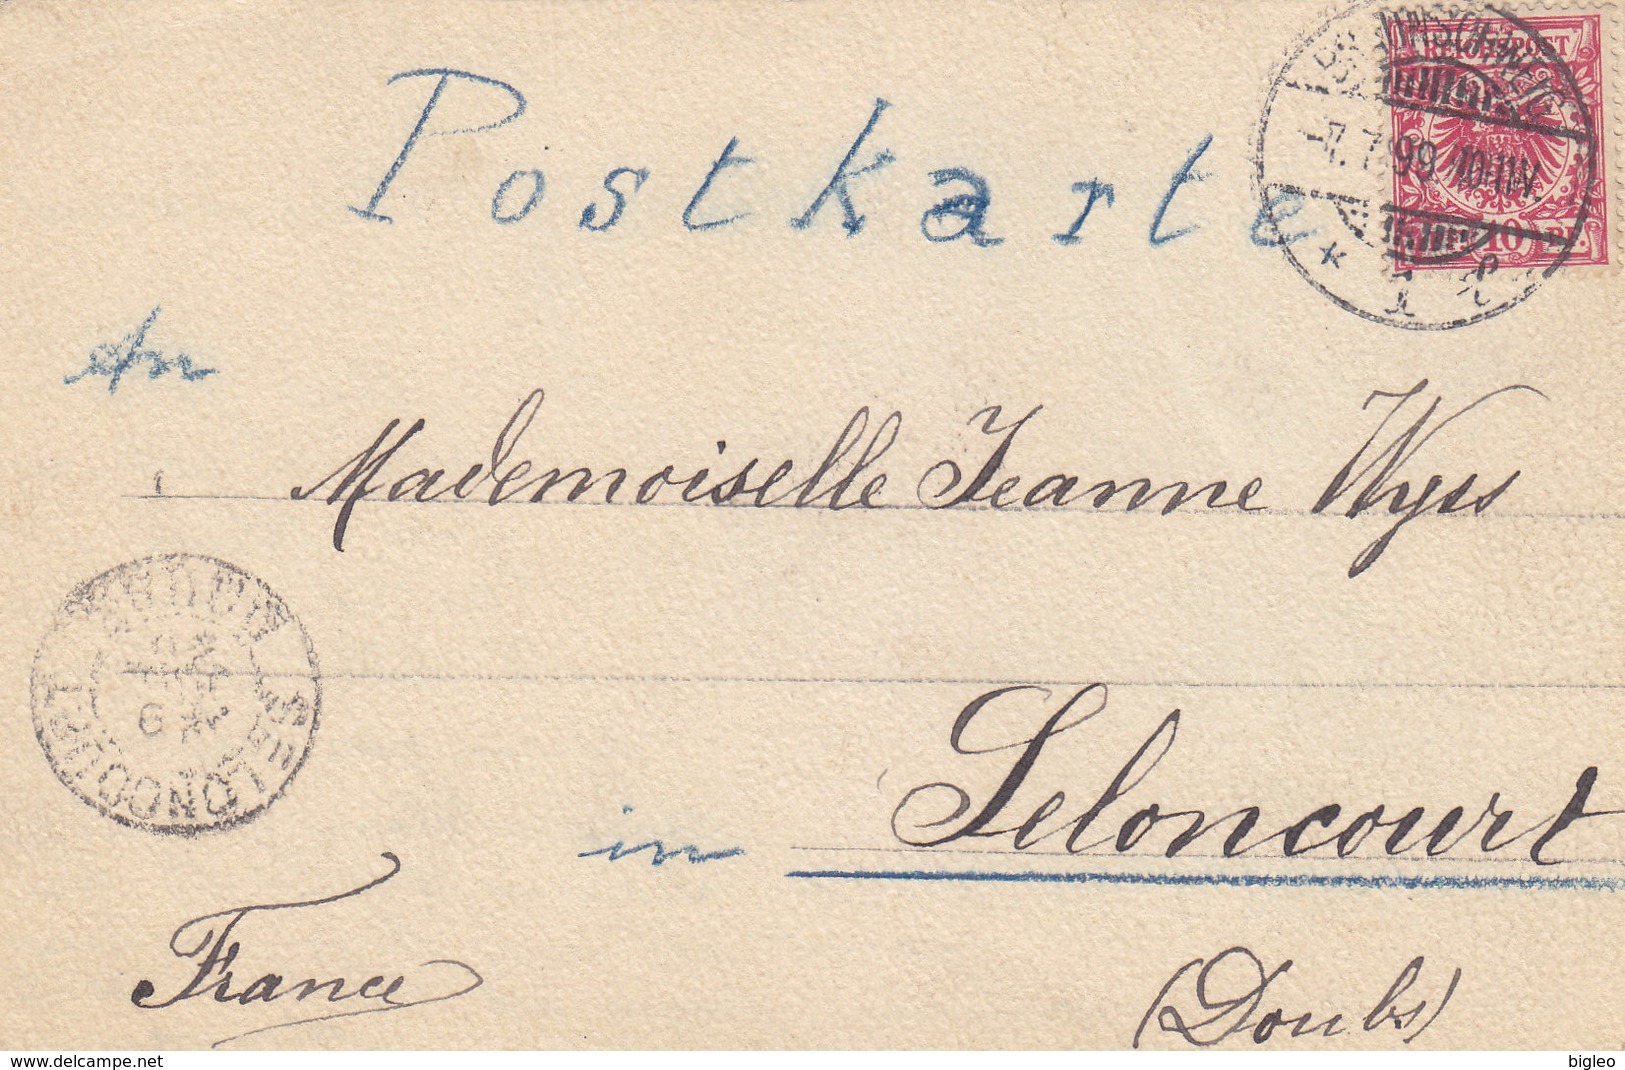 Postkarte
BRAUNSCHWEIG
7.7.99.10-11V.
* 1
REICHSPOST
10 PF.
An
Mademoiselle Jeanne Wyss
SELONCOURT
DOUBS
in Seloncourt
France
(Doubs)
www.delcampe.net
bigleo